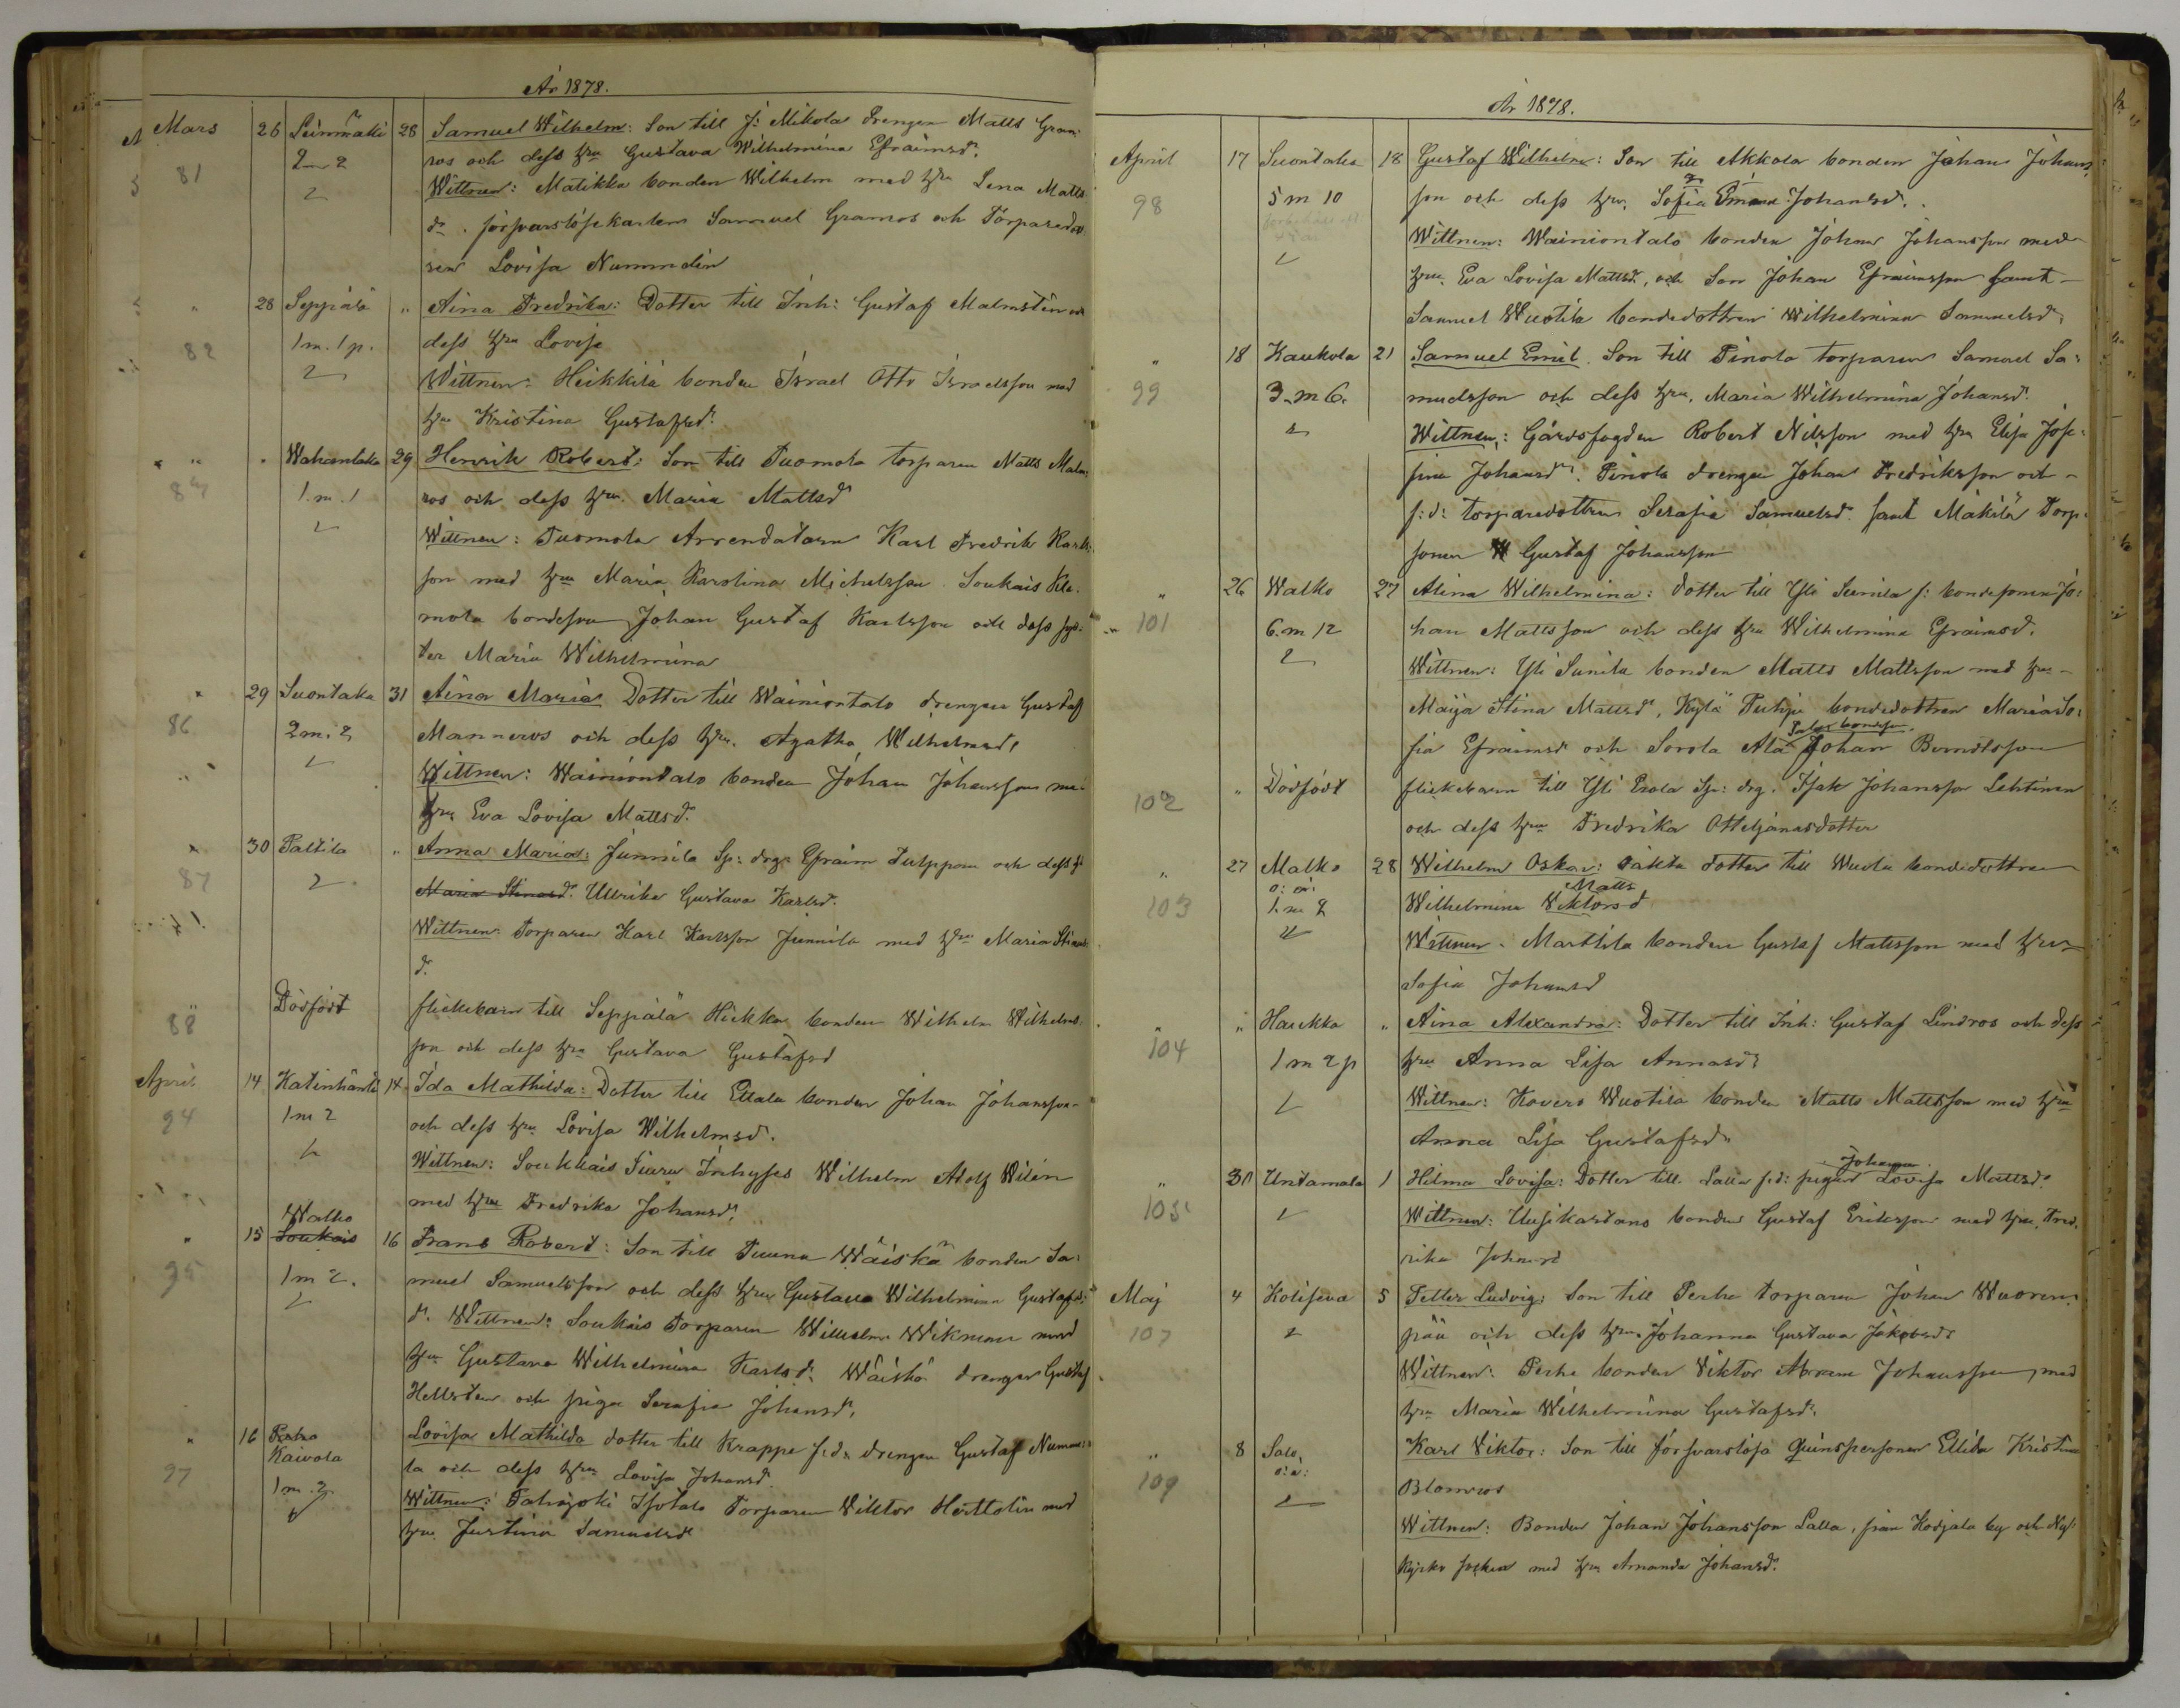 År 1878.
Mars 26 Leinmäki 28 Samuel Wilhelm: Son till J: Mikola drengen Matts Gran-
81 2 m 2 ros och dess hru Gustava Wilhelmina Efraimsd.
Wittnen: Matikka bonden Wilhelm med hru Lena Matts
dr. försvarslöse karlen Samuel Granros och Torparedot
ren Lovisa Nummelin
" 28 Seppälä " Aina Fredrika: Dotter till Inh: Gustaf Malmstén och
82 1 m. 1 p. dess hru Lovisa
Wittnen: Heikkilä bonden Israel Otto Israelsson med
hru Kristina Gustafsd.
" " Wahantaka 29 Henrik Robert: Son till Tuomola torparen Matts Malm-
1. m. 1 ros och dess hru. Maria Mattsd
Wittnen: Tuomola Arrendatorn Karl Fredrik Karls-
son med hru Maria Karolina Michelsson. Soukais Kle-
mola bondeson Johan Gustaf Karlsson och dess sys-
ter Maria Wilhelmina
" 29 Suontaka 31 Aina Maria Dotter till Wainiontalo drengen Gustaf
86 2 m. 2 Manneros och dess hru. Agatha Wilhelmsd.
Wittnen: Wainiontalo bonden Johan Johansson me
hru Eva Lovisa Mattsd.
" 30 Paltila " Anna Maria: Junnila Sp: drg: Efraim Tulppom och dess h
87 Maria Stinasd. Ullrika Gustava Karlsd.
Wittnen: Torparen Karl Karlsson Junnila med hru Maria Stinas
d.
" Dödfödt flickebarn till Seppälä Hiekka bonden Wilhelm Wilhelms-
88 son och dess hru Gustava Gustafsd
April 14 Katinhäntä 14 Ida Mathilda: Dotter till Ellala bonden Johan Johansson
94 1 m 2 och dess hru Lovisa Wilhelmsd.
Wittnen: Soukkais Inhyses Wilhelm Adolf Wilén
med hru Fredrika Johansd.
Walko
" 15 Soukais 16 Frans Robert: Son till Tuuna Wäiskä bonden Sa-
95 1 m 2. muel Samuelsson och dess hru Gustava Wilhelmina Gustafs-
d. Wittnen: Soukais Torparen Wilhelm Wikman med
hru Gustava Wilhelmina Karlsd. Wäiskä drengen Gustaf
Hellsten och pigan Serafia Johansd.
" 16 Raho Lovisa Mathilda dotter till Krappe f.d. drengen Gustaf Numme-
Kaivola la och dess hru Lovisa Johansd.
97 1 m. 2. Wittnen: Isotalo Torparen Viktor Herttolin med
hru Justina Samuelsd
År 1878.
April 17 Suontaka 18 Gustaf Wilhelm: Son till Akkola bonden Johan Johans-
98 5 m 10 son och dess hru. Sofia Johansd.
Wittnen: Wainiontalo bonden Johan Johansson med
hru. Eva Lovisa Mattsd, och Son Johan Efraimsson samt
Samuel Wuotila bondedottren Wilhelmina Samuelsd.
" 18 Kaukola 21 Samuel Emil. Son till Pinola torparen Samuel Sa-
99 3. m 6. muelsson och dess hru. Maria Wilhelmina Johansd.
Wittnen: Gårdsfogden Robert Nilsson med hru Elisa Jose-
fina Johansd. Pinola drengen Johan Fredriksson och
f:d: torparedottren Serafia Samuelsd. samt Mäkilä Torp-
sonen Gustaf Johansson
" 26 Walko 27 Alina Wilhelmina: Dotter till Yli Seinila f: bondesonen Jo-
101 6. m 12 han Mattsson och dess hru Wilhelmina Efraimsd.
Wittnen: Yli Sunila bonden Matts Mattsson med hru
Maija Stina Mattsd, Kylä Tuhju bondedottren Maria So-
fia Efraimsd och Sorola Ala Johan
" Dödfödt flickebarn till Yli Erola Sp: drg. Isak Johansson Lehtinen
102 och dess hru Fredrika Ottelianasdotter
" 27 Malko 28 Wilhelm Oskar: oäkta dotter till bondedottren
o: ä: Matts
103 1. m 2 Wilhelmina Viktorsd
Wittnen. Marttila bonden Gustaf Mattsson med hru
Sofia Johansd
" " Haukka " Aina Alexandra: Dotter till Inh: Gustaf Lindros och dess
104 1 m 2 p hru Anna Lisa Annasd.
Wittnen: Kovero Wuotila bonden Matts Mattsson med hru
Anna Lisa Gustafsd.
Johanna
" 30 Untamala 1 Hilma Lovisa: Dotter till Lalla f:d: pigan Lovisa Mattsd.
105 Wittnen: Uusikartano bonden Gustaf Eriksson med hru. Fred-
rika Johansd
Maj 4 Koliseva 5 Petter Ludvig: Son till Perho torparen Johan Wuoren-
107 pää och dess hru. Johanna Gustava Jakobsd.
Wittnen. Perho bonden Viktor Abram Johansson, med
hru Maria Wilhelmina Gustafsd.
" 8 Salo, Karl Viktor: Son till försvarslösa Qvinspersonen Ellida Kristina
109 o: ä: Blomros
Wittnen: Bonden Johan Johansson Lalla, från Kodjala by och Ny-
kyrko socken med hru Amanda Johansd.